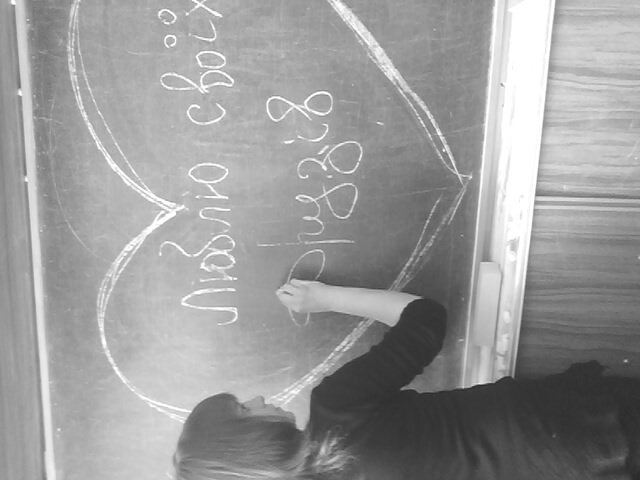 Люблю своїх
друзів